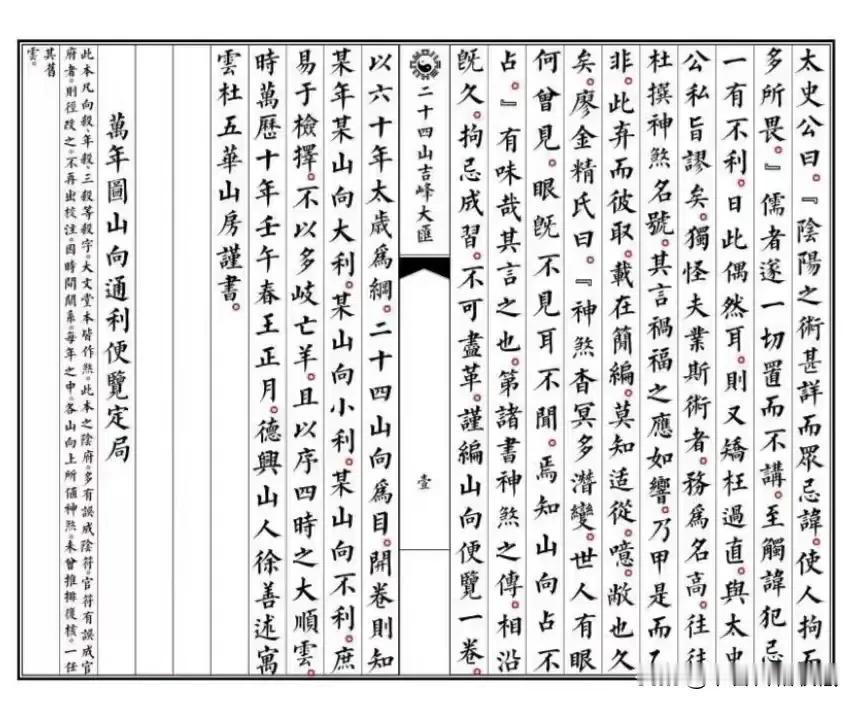 太史公曰。『陰陽之術甚詳而眾忌諱。使人拘而
多所畏。』儒者遂一切置而不講。至觸諱犯忌
一有不利。曰此偶然耳。則又矯枉過直。與太史
公私旨謬矣。獨怪夫業斯術者。務為名高。往往
杜撰神煞名號。其言禍福之應如響。乃甲是而乙
非。此弃而彼取。載在簡編。莫知适從。噫。敝也久
矣。廖金精氏曰。『神煞杳冥多潛變。世人有眼
何曾見。眼既不見耳不聞。焉知山向占不
占。』有味哉其言之也。第諸書神煞之傳。相沿
既久。拘忌成習。不可盡革。謹編山向便覽一卷。
二十四山吉峰大匯
壹
以六十年太歲為綱。二十四山向為目。開卷則知
某年某山向大利。某山向小利。某山向不利。庶
易于檢擇。不以多岐亡羊。且以序四時之大順雲。
時萬歷十年壬午春王正月。德興山人徐善述寓
雲杜五華山房謹書。
萬年圖山向通利便覽定局
此本凡向殺、年殺、三殺等殺字。大文堂本皆作煞。此本之陰府。多有誤成陰符。官符有誤成官
府者。則徑改之。不再出校注。因時間關系。每年之中。各山向上所值神煞。未曾推排復核。一任
其舊
雲。